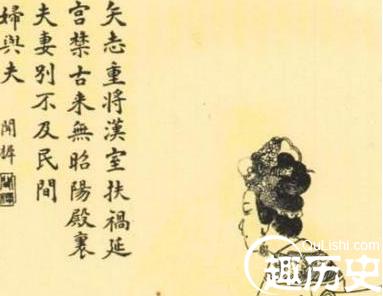 矢志重將漢室扶禍延
宮禁古來無昭陽殿裏
夫妻別不及民間
婦與夫
QuLishi.com
趣历史